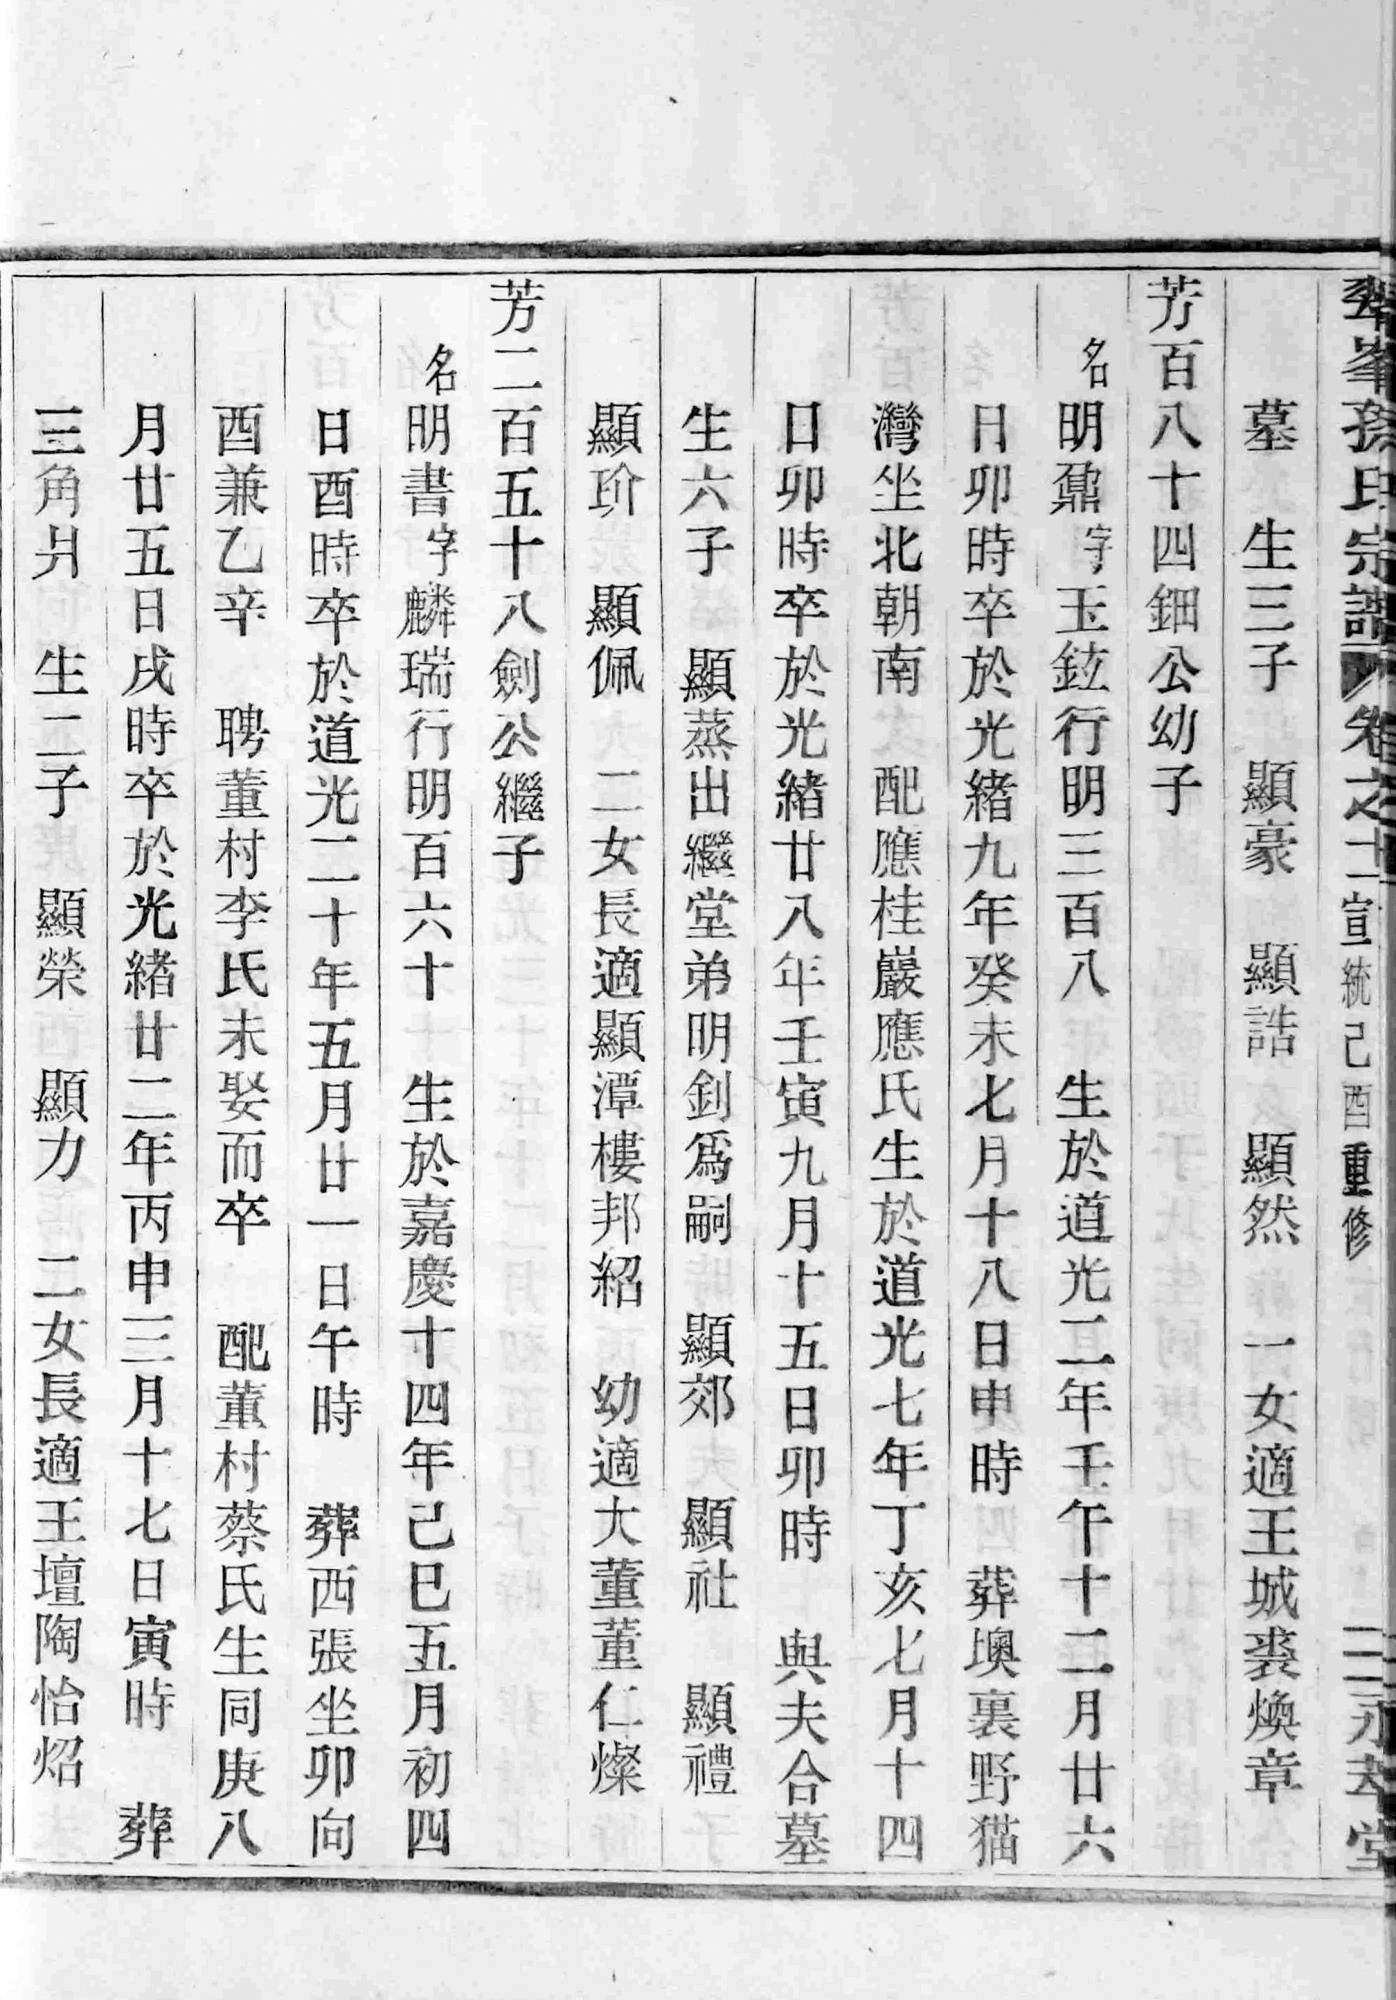 翠峯孫氏宗譜 卷之十二 宣統己酉重修 三 永孝堂
墓 生三子 顯豪 顯誥 顯然 一女適王城裘煥章
芳百八十四鈿公幼子
名明鼐字玉鉉行明三百八 生於道光二年壬午十二月廿六
日卯時卒於光緒九年癸未七月十八日申時 葬墺裏野猫
灣坐北朝南 配應桂巖應氏生於道光七年丁亥七月十四
日卯時卒於光緒廿八年壬寅九月十五日卯時 與夫合墓
生六子 顯蒸出繼堂弟明釗爲嗣 顯郊 顯社 顯禮
顯玠 顯佩 二女長適顯潭樓邦紹 幼適大董董仁燦
芳二百五十八劍公繼子
名明書字麟瑞行明百六十 生於嘉慶十四年己巳五月初四
日酉時卒於道光二十年五月廿一日午時 葬西張坐卯向
酉兼乙辛 聘董村李氏未娶而卒 配董村蔡氏生同庚八
月廿五日戌時卒於光緒廿二年丙申三月十七日寅時 葬
三角爿 生二子 顯榮 顯力 二女長適王壇陶怡炤